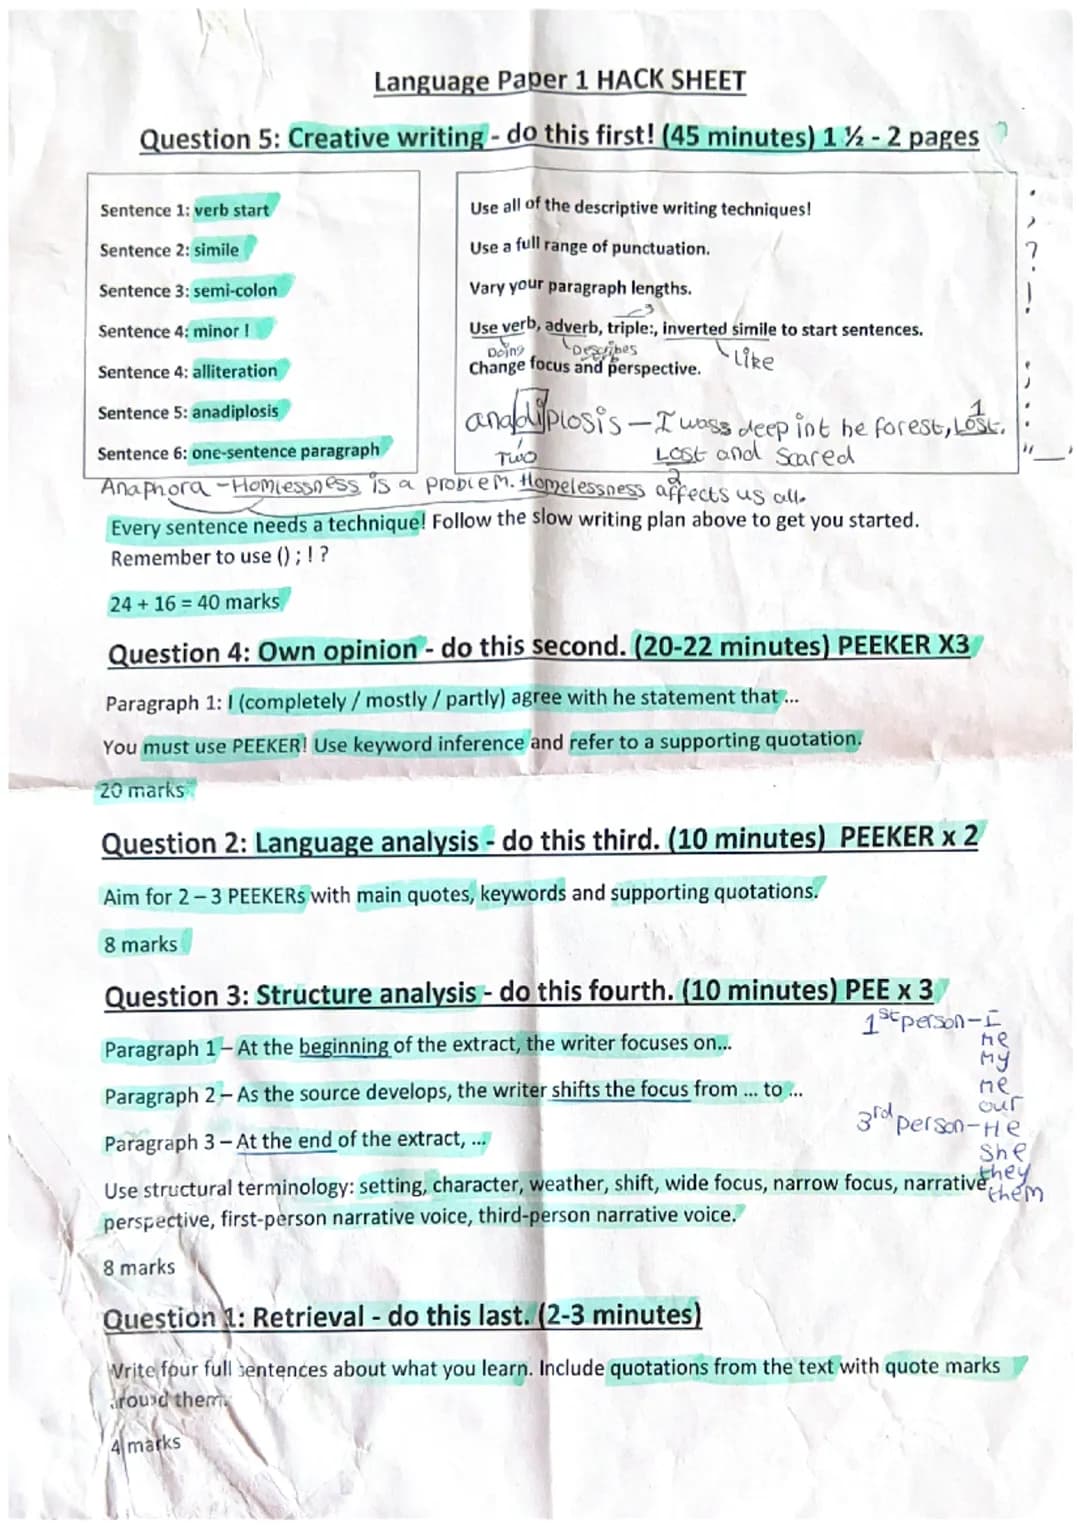 Language Paper 1 HACK SHEET
Question 5: Creative writing - do this first! (45 minutes) 1 ½ - 2 pages
Sentence 1: verb start
Sentence 2: simile
Sentence 3: semi-colon
Sentence 4: minor !
Sentence 4: alliteration
Sentence 5: anadiplosis
Sentence 6: one-sentence paragraph
Use all of the descriptive writing techniques!
Use a full range of punctuation.
Vary your paragraph lengths.
Use verb, adverb, triple:, inverted simile to start sentences.
Doing Describes Like
Change focus and perspective.
anadiplosis - I wass deep int he forest, Lost.
1
Two Lost and Scared
2
Anaphora - Homlessness is a problem. Homelessness affects us all.
Every sentence needs a technique! Follow the slow writing plan above to get you started.
Remember to use () ; ! ?
24 + 16 = 40 marks
Question 4: Own opinion - do this second. (20-22 minutes) PEEKER X3
Paragraph 1: I (completely / mostly / partly) agree with he statement that ...
You must use PEEKER! Use keyword inference and refer to a supporting quotation.
20 marks
Question 2: Language analysis - do this third. (10 minutes) PEEKER x 2
Aim for 2 – 3 PEEKERs with main quotes, keywords and supporting quotations.
8 marks
Question 3: Structure analysis - do this fourth. (10 minutes) PEE x 3
1st person - I
me
my
me
our
3rd person - He
She
they
them
Paragraph 1 – At the beginning of the extract, the writer focuses on...
Paragraph 2 – As the source develops, the writer shifts the focus from ... to ...
Paragraph 3 – At the end of the extract, ...
Use structural terminology: setting, character, weather, shift, wide focus, narrow focus, narrative
perspective, first-person narrative voice, third-person narrative voice.
8 marks
Question 1: Retrieval - do this last. (2-3 minutes)
Write four full sentences about what you learn. Include quotations from the text with quote marks
around them.
4 marks